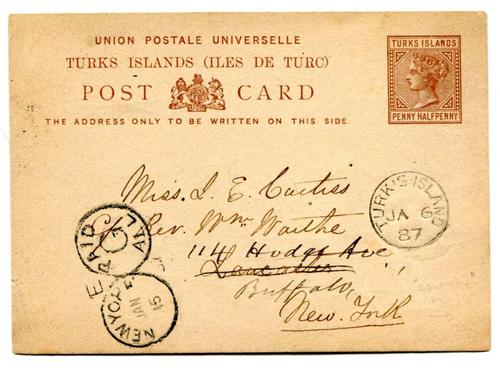 UNION POSTALE UNIVERSELLE
TURKS ISLANDS (ILES DE TURC)
POST CARD
THE ADDRESS ONLY TO BE WRITTEN ON THIS SIDE
TURKS ISLANDS
PENNY HALFPENNY
Miss. I. E. Curtiss
Rev. Wm Waithe
114 Hodge Ave,
Lancaster
Buffalo,
New. York
TURK'S-ISLAND
JA 6
87
PAID
ALL
NEW YORK
JAN
15